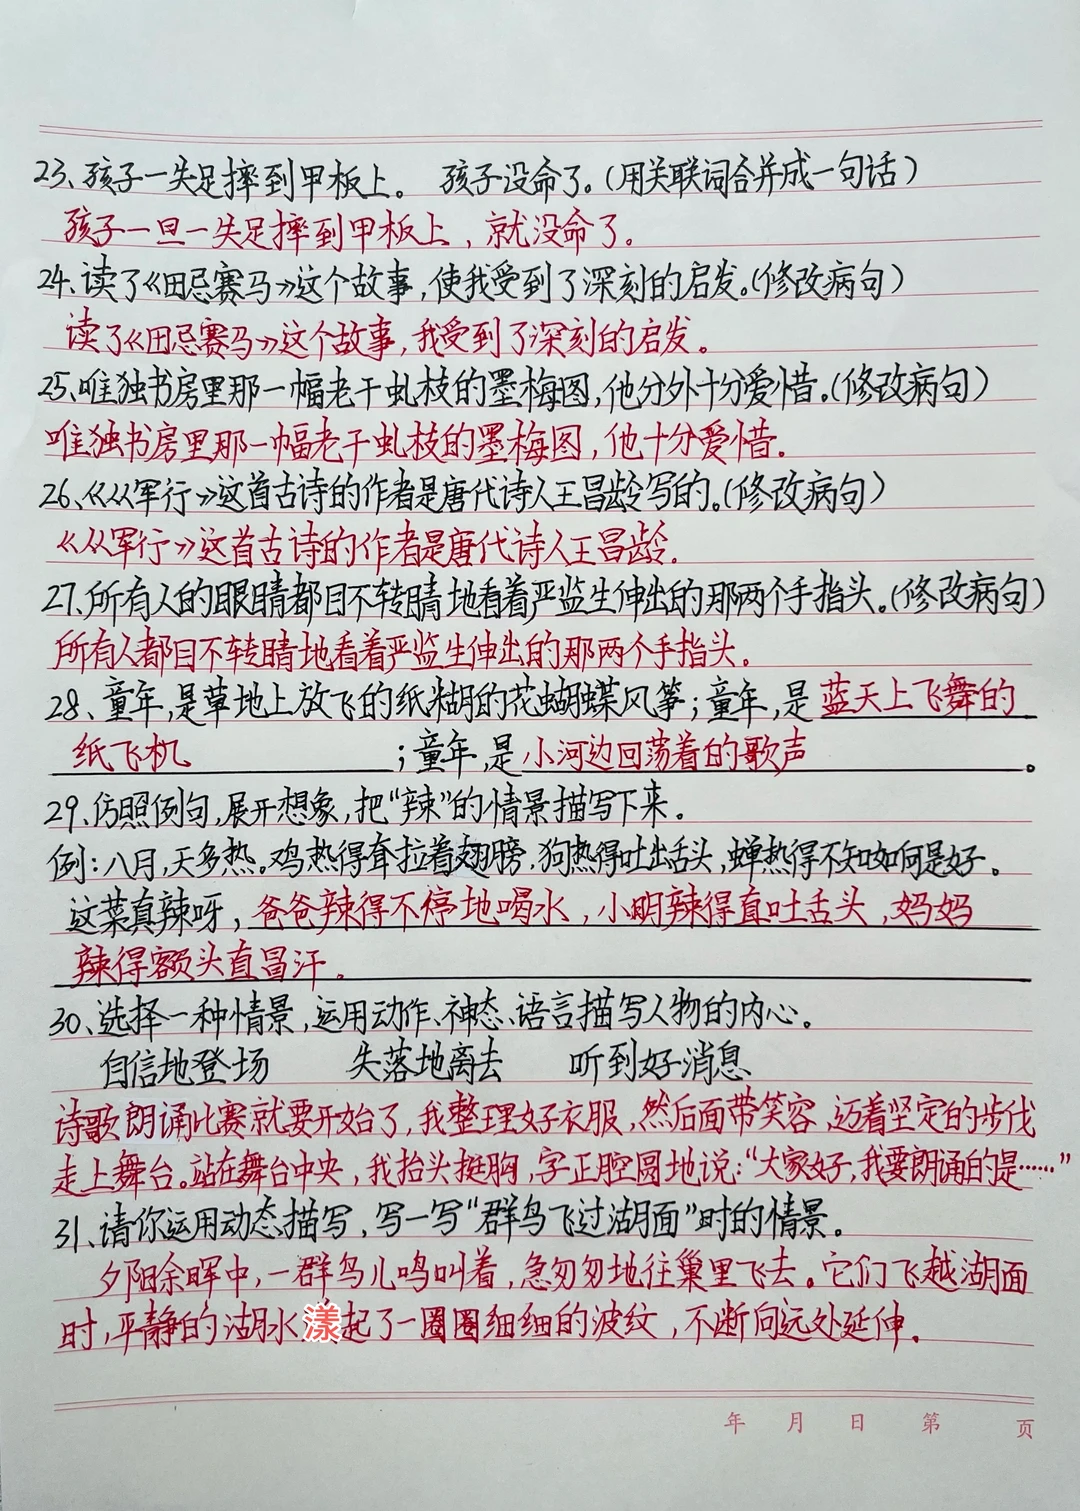 23、孩子一失足摔到甲板上。 孩子没命了。(用关联词合并成一句话)
孩子一旦一失足摔到甲板上，就没命了。
24、读了《田忌赛马》这个故事，使我受到了深刻的启发。(修改病句)
读了《田忌赛马》这个故事，我受到了深刻的启发。
25、唯独书房里那一幅老干虬枝的墨梅图，他分外十分爱惜。(修改病句)
唯独书房里那一幅老干虬枝的墨梅图，他十分爱惜。
26、《从军行》这首古诗的作者是唐代诗人王昌龄写的。(修改病句)
《从军行》这首古诗的作者是唐代诗人王昌龄。
27、所有人的眼睛都目不转睛地看着严监生伸出的那两个手指头。(修改病句)
所有人都目不转睛地看着严监生伸出的那两个手指头。
28、童年，是草地上放飞的纸糊的花蝴蝶风筝；童年，是蓝天上飞舞的
纸飞机；童年，是小河边回荡着的歌声。
29、仿照例句，展开想象，把“辣”的情景描写下来。
例：八月，天多热。鸡热得耷拉着翅膀，狗热得吐出舌头，蝉热得不知如何是好。
这菜真辣呀，爸爸辣得不停地喝水，小明辣得直吐舌头，妈妈
辣得额头直冒汗。
30、选择一种情景，运用动作、神态、语言描写人物的内心。
自信地登场 失落地离去 听到好消息
诗歌朗诵比赛就要开始了，我整理好衣服，然后面带笑容，迈着坚定的步伐
走上舞台。站在舞台中央，我抬头挺胸，字正腔圆地说：“大家好，我要朗诵的是……”
31、请你运用动态描写，写一写“群鸟飞过湖面”时的情景。
夕阳余晖中，一群鸟儿鸣叫着，急匆匆地往巢里飞去。它们飞越湖面
时，平静的湖水漾起了一圈圈细细的波纹，不断向远处延伸。
年 月 日 第 页